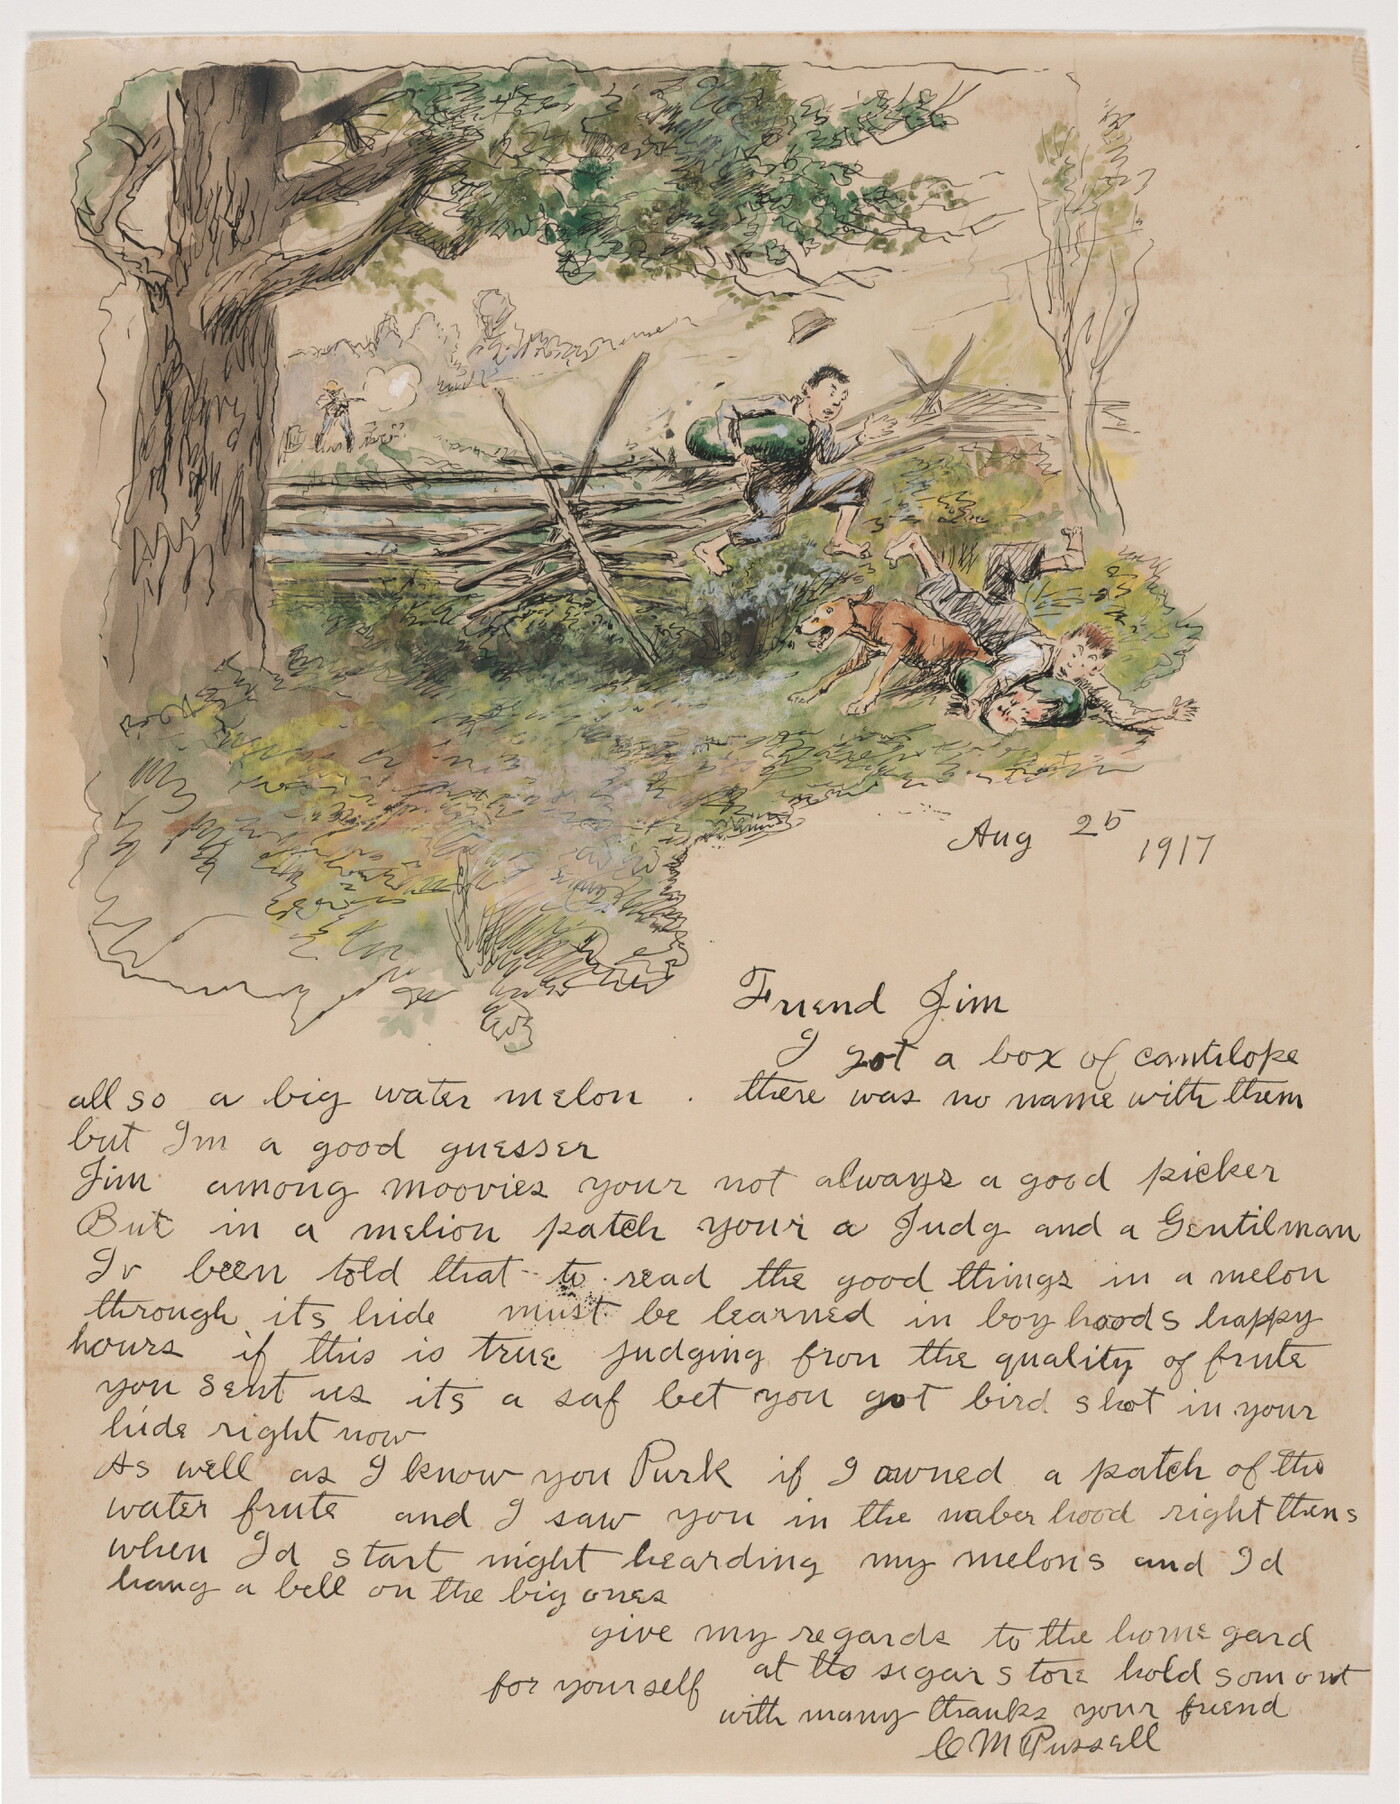 Aug 25 1917
Friend Jim
I got a box of cantilope
all so a big water melon . there was no name with them
but Im a good guesser
Jim among moovies your not always a good picker
But in a melion patch your a Judg and a Gentilman
Iv been told that to read the good things in a melon
through its hide must be learned in boy hoods happy
hours if this is true judging fron the quality of frute
you sent us its a saf bet you got bird shot in your
hide right now
As well as I know you Purk if I owned a patch of this
water frute and I saw you in the naber hood right thens
when Id start night hearding my melons and Id
hang a bell on the big ones
give my regards to the home gard
at tto segar store hold som out
for yourself
with many thanks your friend
C M Russell